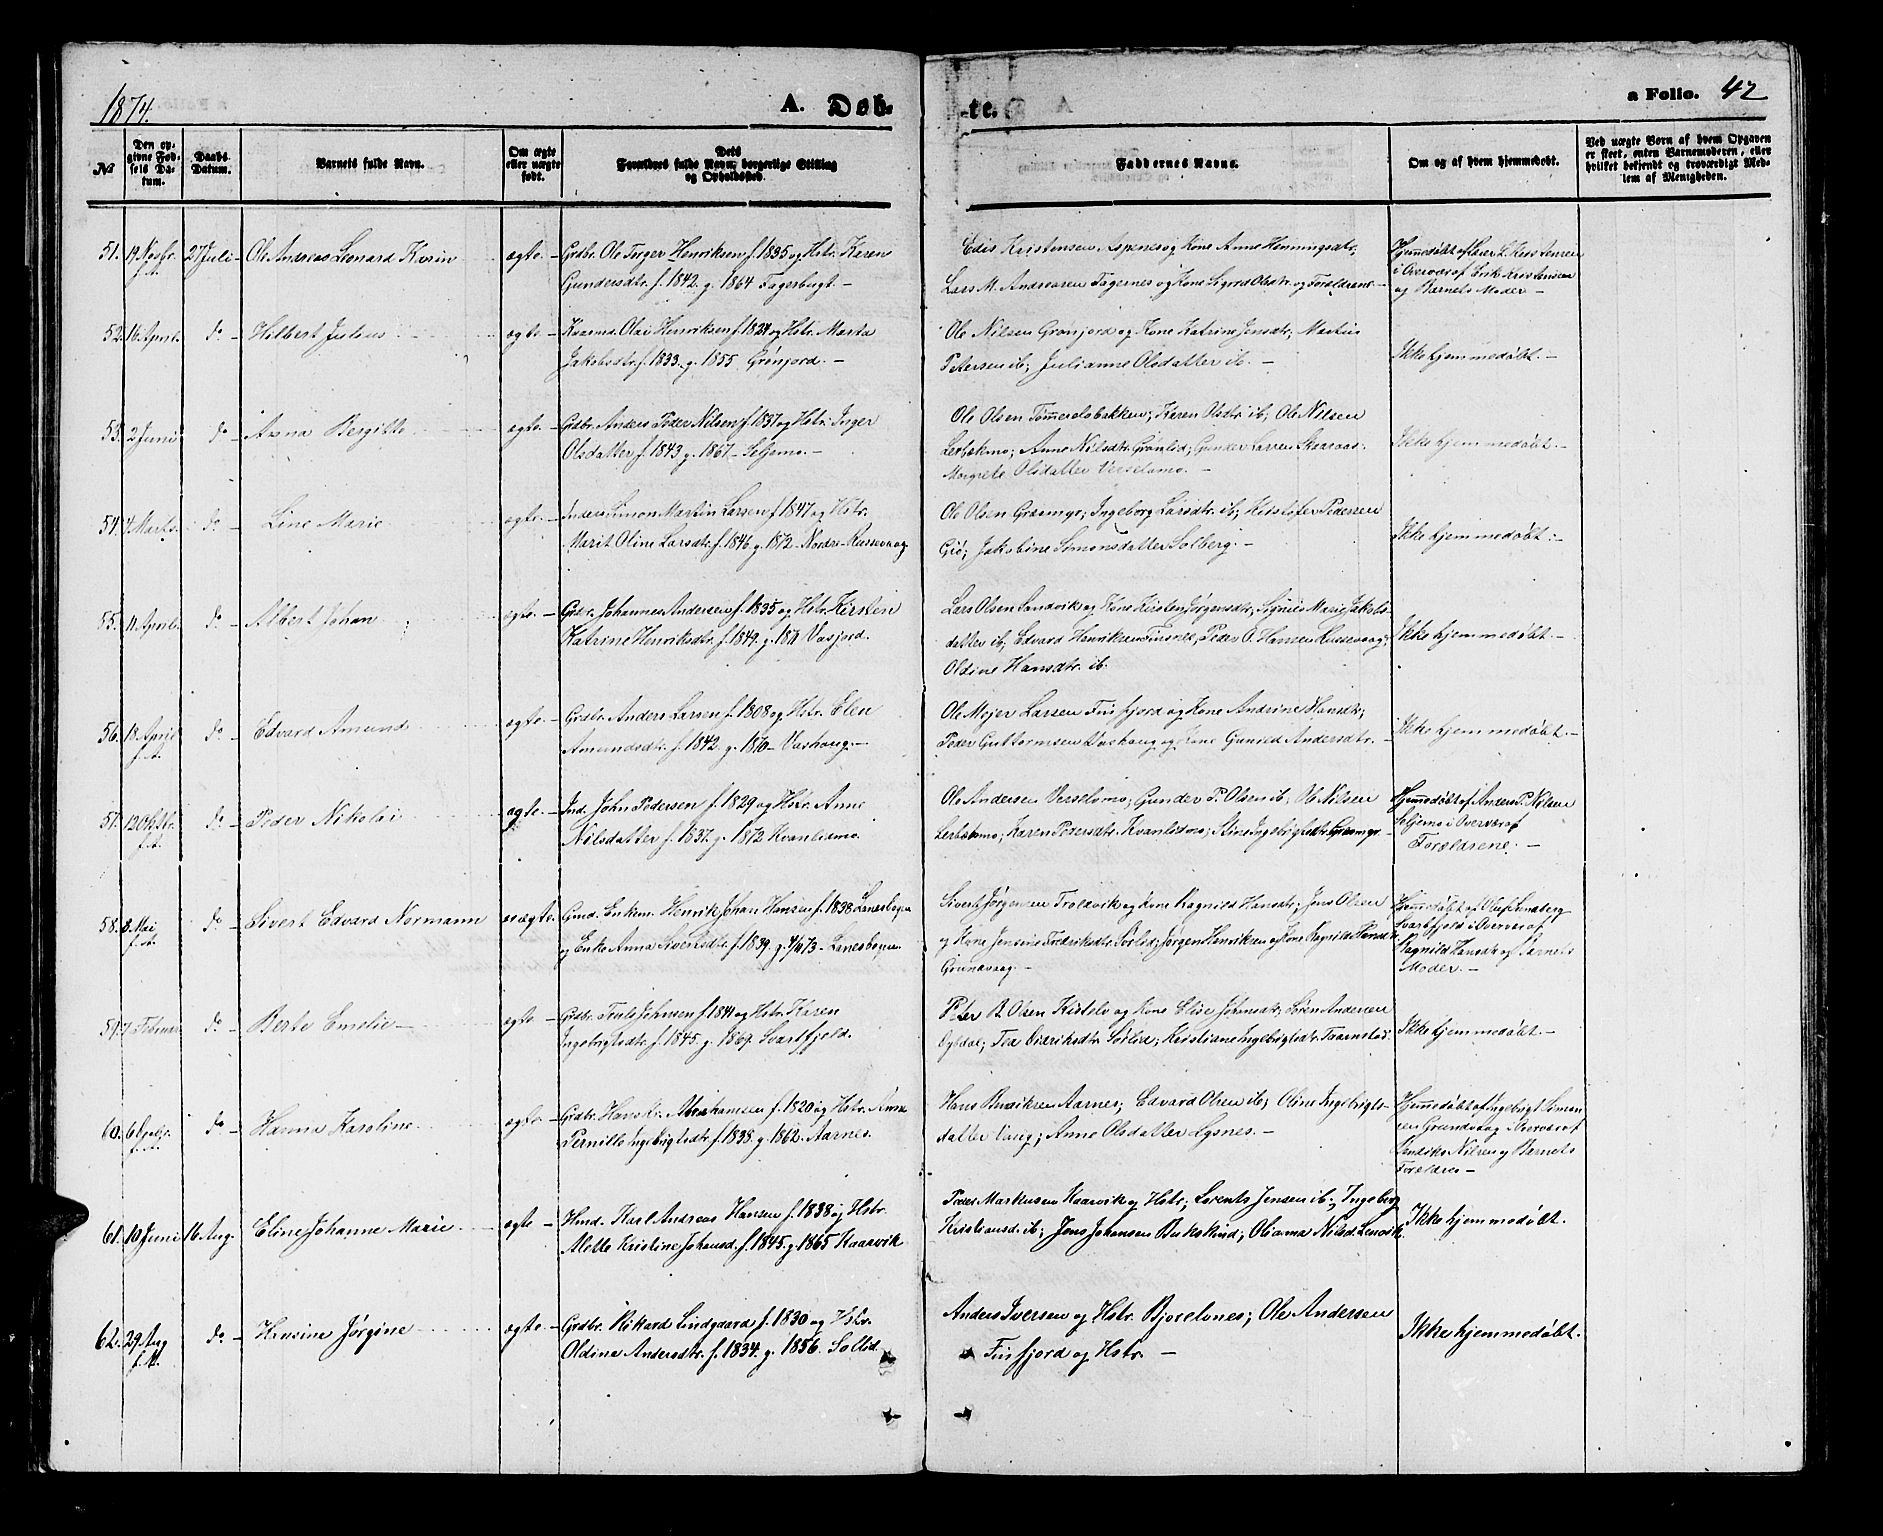 1874.
A. Døb-
-te.
a Folio. 42
No
Den op-
givne Fød-
sels Da-
tum.
Daabs
Datum.
Barnets fulde Navn.
Om ægte
eller uægte
født.
Dets
Forældres fulde Navn, borgerlige Stilling
og Opholdssted.
Faddernes Navne.
Om og af hvem hjemmedøbt.
Ved uægte Børn af hvem Opgaven
er skeet, enten Barnemoderen, eller
hvilket bekjendt og troværdigt Med-
lem af Menigheden.
51. 19 Novbr. f.A. 27 Juli Ole Andreas Leonard Kurin ægte. Grdbr. Ole Torger Henriksen f. 1835 og Hstr. Karen
Gundersdtr. f. 1842. g. 1864 Fagerbugt. —
Edis Kristensen Aspenes og Kone Anne Henningsdtr,
Lars M. Andreasen Fagernes og Kone Sigrid Olsdtr. og Forældrene —
Hjemmedøbt af Lærer L. Kristensen
i Overvær af Erik Kristensen
og Barnets Moder —
52. 16 April. do — Hilbert Julius ægte. — Huusmd. Olai Henriksen f. 1827 og Hstr. Marta
Jakobsdtr. f. 1833. g. 1855 Grönjord. —
Ole Nilsen Gronjord og Kone Katrine Jensdtr; Martius
Petersen ib; Julianne Olsdatter ib. —
Ikke hjemmedøbt. —
53. 2 Juni do — Anna Bergitte ægte. — Grdbr. Anders Peder Nilsen f. 1837 og Hstr. Inger
Olsdatter f. 1843 g. 1867 — Seljemo. —
Ole Olsen Tømmerelvbakken; Karen Olsdtr. ib; Ole Nilsen
Lerbækmo; Anne Nilsdtr. Grönlid; Gunder Larsen Skarvaas
Margrete Olsdatter Verselvmo. —
Ikke hjemmedøbt. —
54. 4 Marts. do — Line Marie ægte. — Inders Simon Martin Larsen f. 1847 og Hstr.
Marit Oline Larsdtr. f. 1846. g. 1872. Nordre-Russevaag
Ole Olsen Græsmyr; Ingeborg Larsdtr. ib; Kristofer Pedersen
Giö; Jakobine Simonsdatter Solberg. —
Ikke hjemmedøbt. —
55. 11 April. do — Albert Johan ægte. — Grdbr. Johannes Andersen f. 1835 og Hstr. Kirsten
Katrine Henriksdtr. f. 1849. g. 1871 Vasjord.
Lars Olsen Sandvik og Kone Kirsten Jørgensdtr; Signis Marie Jakobs-
datter ib; Edvard Henriksen Finsnes; Peder O. Hansen Russevaag;
Oldine Hansdtr. ib.
Ikke hjemmedøbt. —
56. 18 April f.A. do — Edvard Amund ægte. — Grdbr. Anders Larsen f. 1808 og Hstr. Elen
Amundsdtr. f. 1842. g. 1870 — Vashaug. —
Ole Mejer Larsen Finfjord og Kone Andrine Hansdtr;
Peder Guttormsen Vashaug og Kone Gunild Andersdtr. —
Ikke hjemmedøbt. —
57. 12 Oktbr. f.A. do — Peder Nikolai ægte. — Ind. John Pedersen f. 1829 og Hstr. Anne
Nilsdatter f. 1837. g. 1872 Kvanlidmo.
Ole Andersen Verselvmo; Gunder P. Olsen ib; Ole Nilsen
Lerbækmo; Karen Pedersdtr. Kvanlidmo; Stine Ingebrigtsdtr. Græsmyr. —
Hjemmedøbt af Anders P. Nilsen
Seljemo i Overvær af
Forældrene. —
58. 8. Mai f.A. do — Sivert Edvard Normann uægte. Gmd. Enkem. Henrik Johan Hansen f. 1838 Lanesbogen
og Enke Anna Sivertsdtr. f. 1839. g. 4/10 73 — Lanesbogen
Sivert Jørgensen Trolvik og Kone Ragnild Hansdtr; Jens Olsen
og Kone Jensine Fredriksdtr. Sørlid; Jørgen Henriksen og Kone Ragnild Hansdtr.
Grunvaag. —
Hjemmedøbt af Oluf Lundberg
Svartfjeld i Overvær af
Ragnild Hansdtr. og Barnets
Moder. —
59. 7. Februar do — Berte Emelie — ægte. — Grdbr. Truls Johnsen f. 1841 og Hstr. Karen
Ingebrigtsdtr. f. 1845. g. 1867. Svartfjeld.
Peter B. Olsen Kistelv og Kone Elise Johansdtr; Søren Andersen
Bybdal; Tea Didriksdtr. Sørlid; Kristiane Ingebrigtsdtr. Taarnstad.
Ikke hjemmedøbt. —
60. 6 f.A. do — Hanna Karoline ægte. — Grdbr. Hans Kr. Abrahamsen f. 1820 og Hstr. Anne
Pernille Ingebrigtsdtr. f. 1838. g. 1862. Aarnes.
Hans Bendiksen Aarnes; Edvard Olsen ib; Oline Ingebrigts-
datter Vang; Anne Olsdatter Lysnes. —
Hjemmedøbt af Ingebrigt Simon-
sen Grundvaag i Overvær af
Hendrike Nilsen og Barnets
Forældre —
61. 10 Juni 16 Aug. Eline Johanne Marie ægte — Hmd. Karl Andreas Hansen f. 1838 og Hstr.
Mette Kristine Johansd. f. 1845. g. 1865 Kaarvik
Peder Markussen Kaarvik og Hstr; Lorents Jensen ib; Ingeborg
Kristiansd. ib; Jens Johansen Bukskind; Olianna Nilsd. Lenvik.
Ikke hjemmedøbt.
62. 29 Aug f.A. do — Hansine Jørgine ægte. — Grdbr. Rikard Lindgaard f. 1830 og Hstr.
Oldina Andersdtr. f. 1834. g. 1856. Sollid.
Anders Iversen og Hstr. Bjorelvnes; Ole Andersen
Finfjord og Hstr. —
Ikke hjemmedøbt.